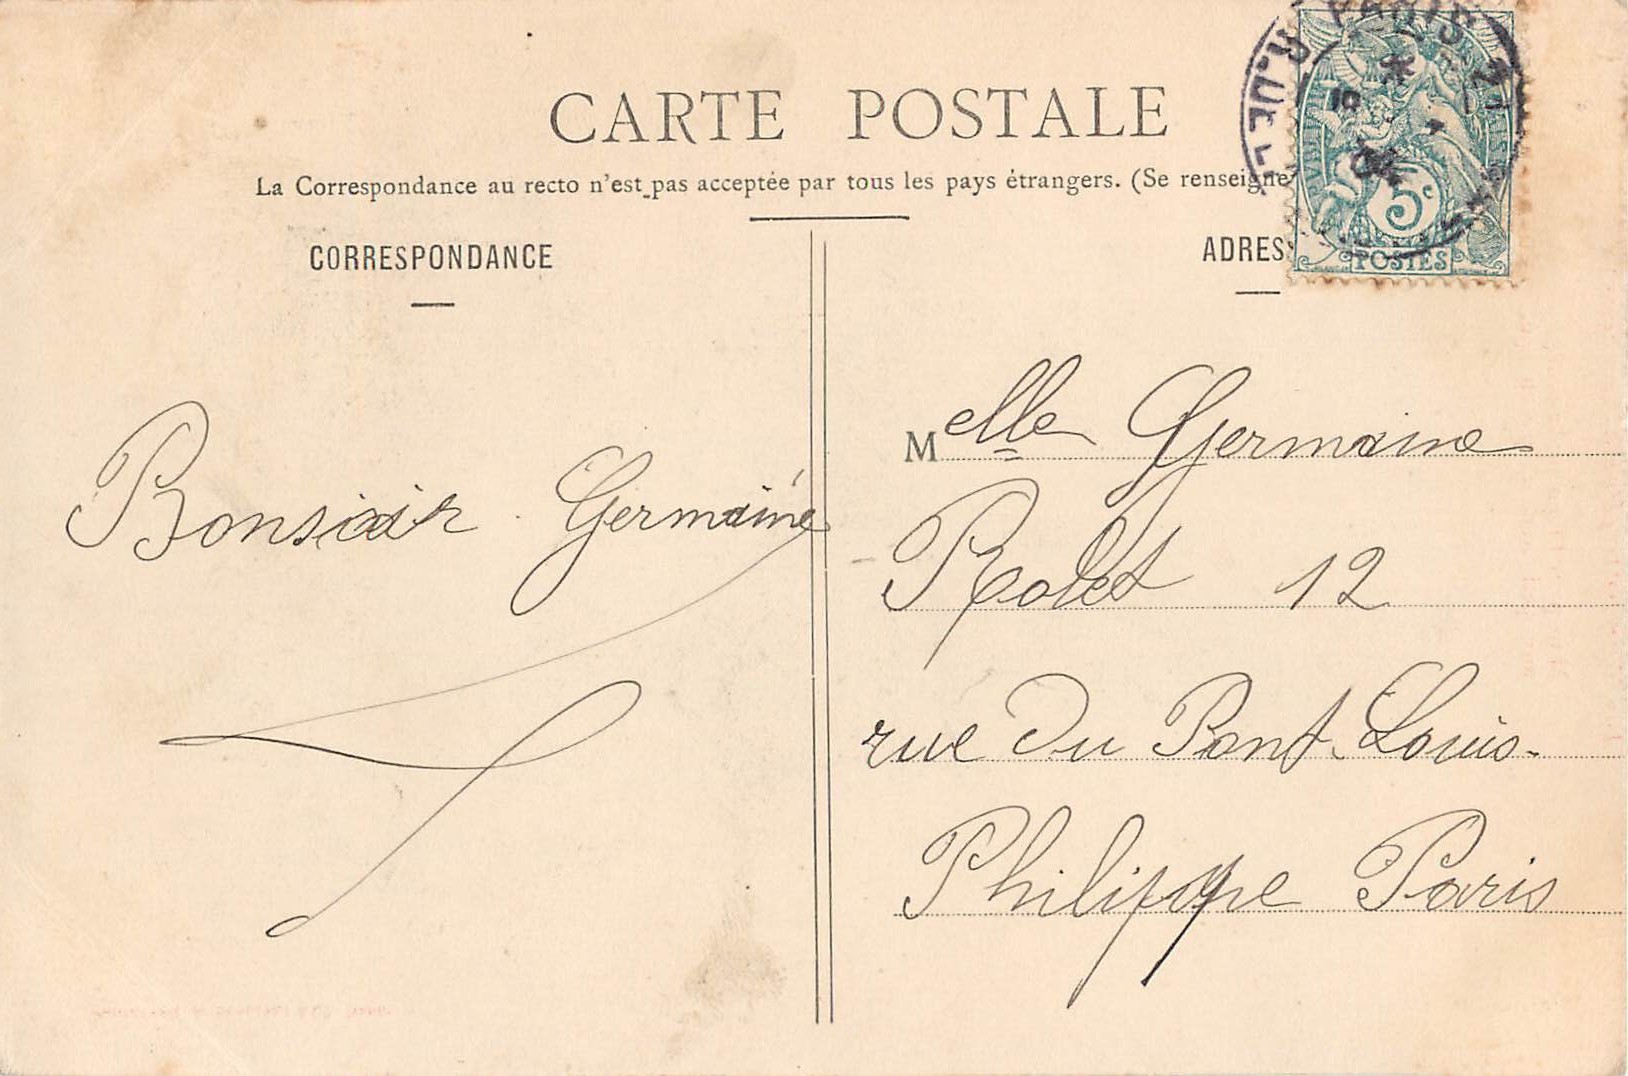 CARTE POSTALE
La Correspondance au recto n'est pas acceptée par tous les pays étrangers. (Se renseigne
CORRESPONDANCE
ADRES
PARIS
R. DE
5c
POSTES
Bonsoir Germaine
Melle Germaine
Rolet 12
rue du Pont Louis-
Philippe Paris